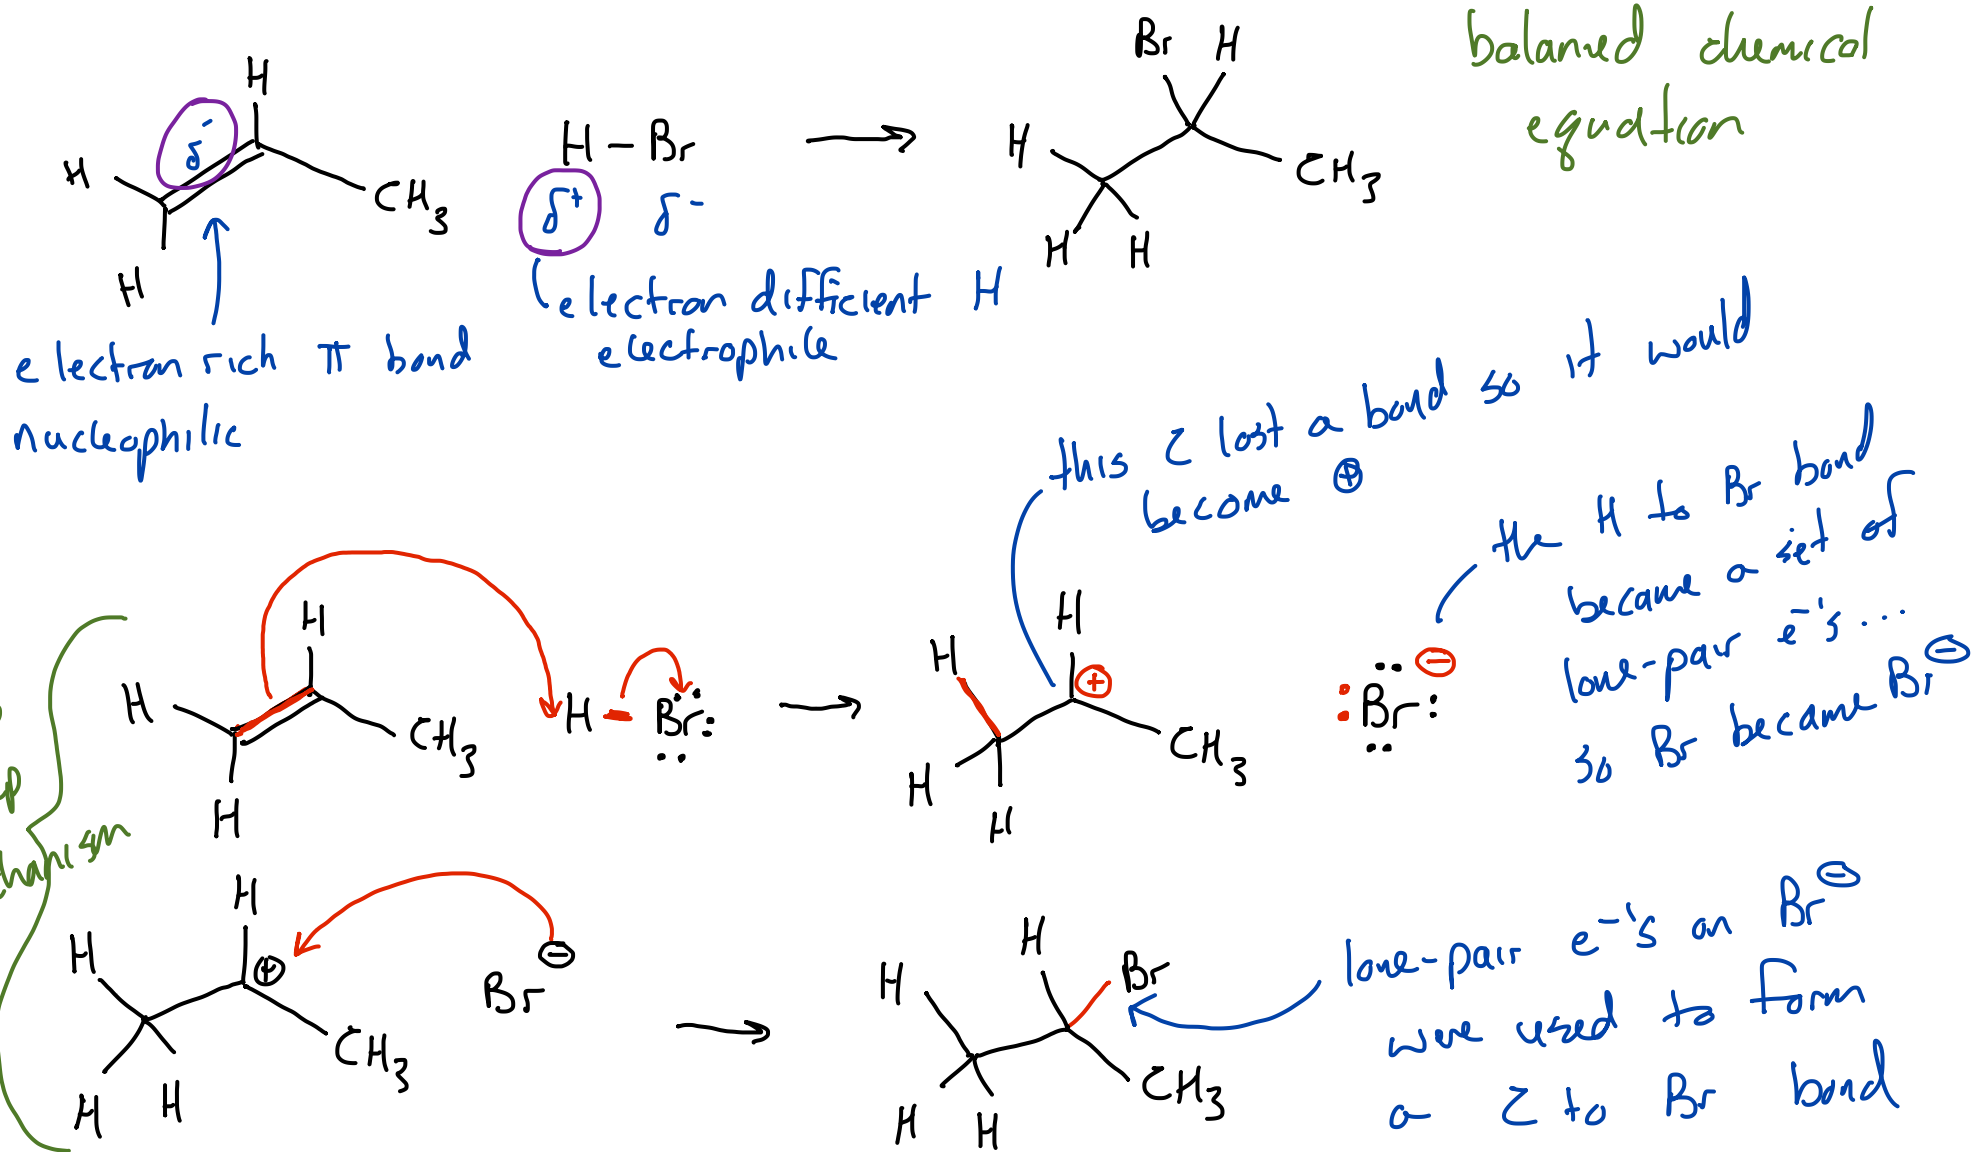 balanced chemical
equation
H
H
H
CH3
δ-
H - Br
δ+ δ-
Br H
H
H H
CH3
electron rich π bond
nucleophilic
electron difficient H
electrophile
this C lost a bond so it would
become ⊕
the H to Br bond
became a set of
lone-pair e-'s...
so Br became Br⊖
H
H
H
CH3
H - Br
H
H
H
H
⊕
CH3
Br ⊖
p
hanism
H
H
H
H
⊕
CH3
Br ⊖
H
H
H
H
Br
CH3
lone-pair e-'s on Br⊖
were used to form
a C to Br bond